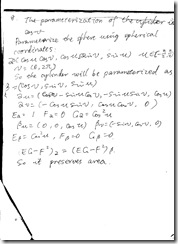 9. The parameterization of the cylinder is
Parameterize the sphere using spherical
coordinates.
(cosu cosv, cosu sinv, sinu)
v ∈ (0, 2π)
So the cylinder will be parameterized as
(cosv, sinv, sinu)
αu = (-sinu cosv, -sinu sinv, cosu)
αv = (-cosu sinv, cosu cosv, 0)
Eα = 1 Fα = 0 Gα = cos²u
βu = (0, 0, cosu) βv = (-sinv, cosv, 0)
Eβ = cos²u, Fβ = 0 Gβ =
(EG-F²)α = (EG-F²)β
So it preserves area.